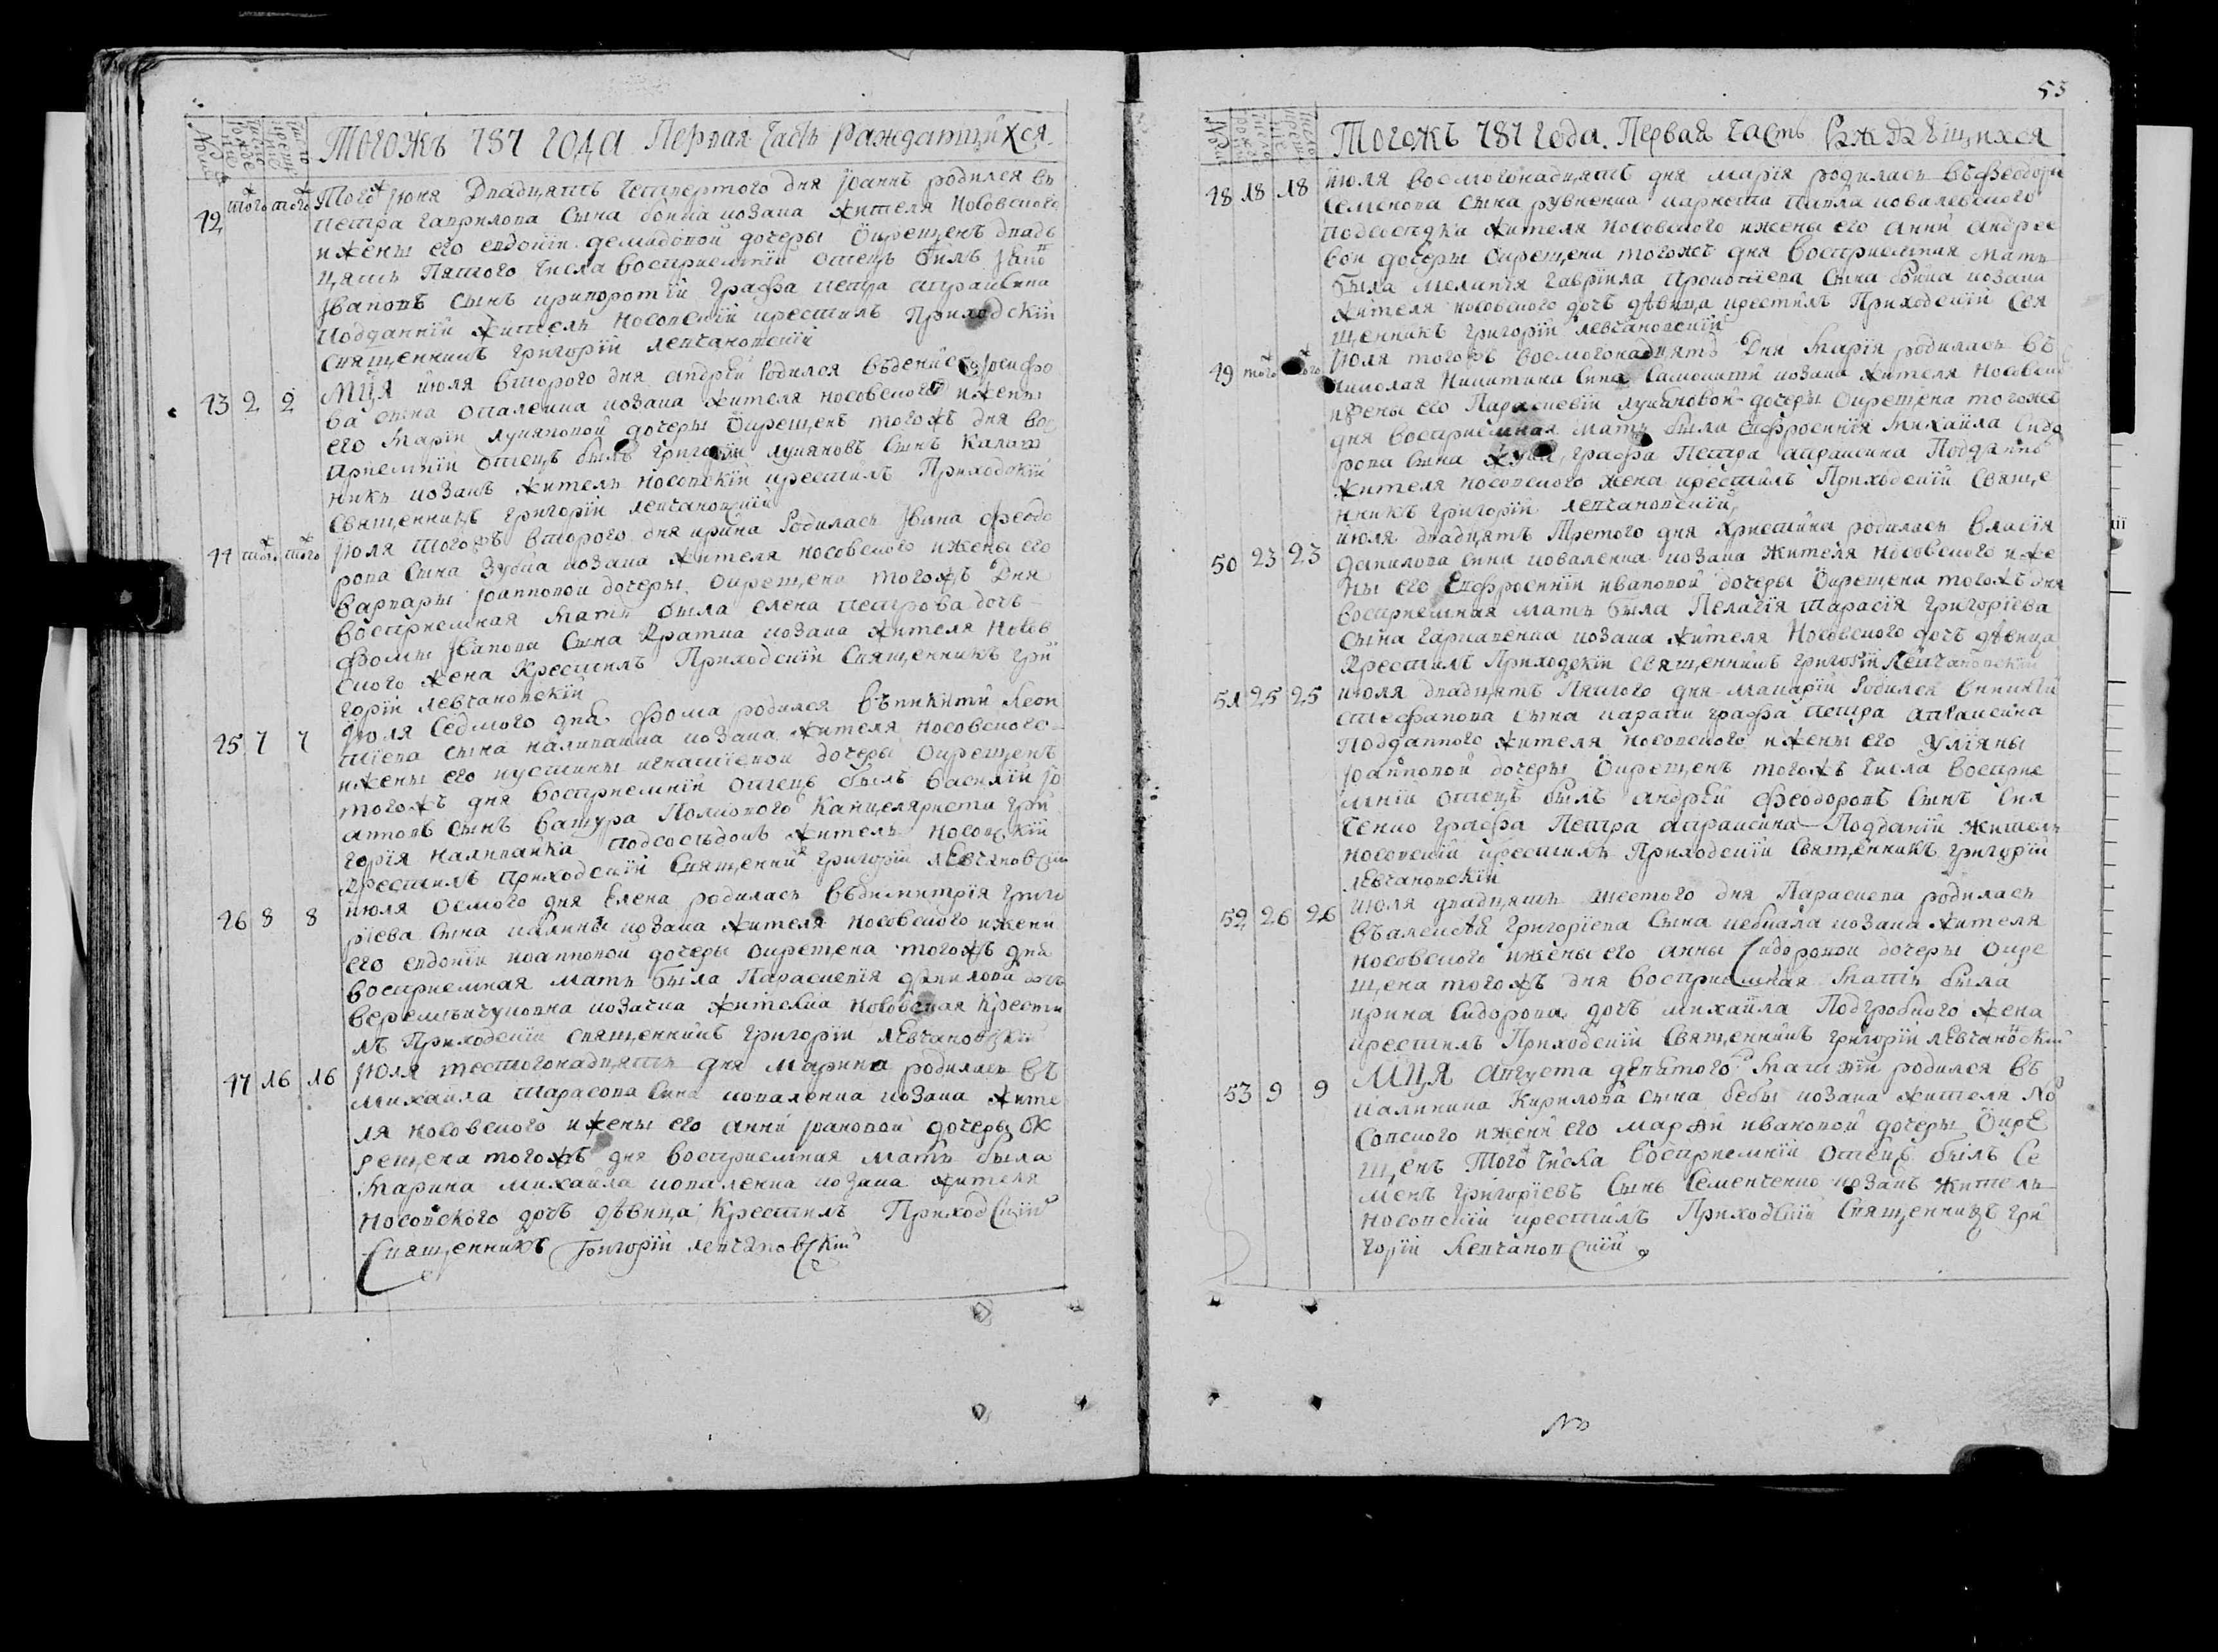 Тогожъ 787 года Первая часть раждающихся
42 того того Того Июня двадцять четвертого дня Іоаннъ родился въ
Петра Гаврилова сына козака жителя носовского
и жены его евдокіи демидовой дочеры окрещенъ двадъ
цять пятого числа восприемній отецъ былъ
Івановъ сынъ графа петра апраксина
подданній житель носовскій крестилъ Приходскій
священникъ григорій левчановскій
43 2 2 Мца июля второго дня андрей родился въ
ва сына опаленка козака жителя носовского и жены
его марїи лукяновой дочеры окрещенъ тогожъ дня во
приемній отецъ былъ григорій лукяновъ сынъ
никъ козакъ житель носовскій крестилъ Приходскій
священникъ григорій левчановскій
44 того того Июля тогожъ второго дня ирина родилась Івана феодо
рова сына зубка козака жителя носовского и жены его
варвары іоанновой дочеры окрещена тогожъ дня
восприемная мать была елена петрова дочъ
фомы Іванова сына кратка козака жителя носов
ского жена Крестилъ Приходскій священникъ гри
горій левчановскій
45 7 7 Июля седмого дня фома родился въ никити леон
тіева сына наливайка козака жителя носовского
и жены его иустины игнатіевой дочеры окрещенъ
тогожъ дня восприемній отецъ былъ василій іо
анновъ сынъ вакура Полкового Канцеляриста гри
горія наливайка подсосѣдокъ житель носовскій
крестилъ приходскій священник григорій левчановскій
46 8 8 июля осмого дня Елена родилась въ димитрія григо
ріева сына калины козака жителя носовского и жени
его евдокіи иоанновой дочеры окрещена тогожъ дня
восприемная мать была Параскевія данилова дочъ
козачка жителка носовская крести
лъ Приходскій священникъ григорій левчановскій
47 16 16 Июля шестогонадцять дня Марина родилась въ
михаила тарасова сина коваленка козака жите
ля носовского и жены его анни іоановой дочеры ок
рещена тогожъ дня восприемная мать была
марина михаила коваленка козака жителя
носовского дочъ дѣвица Крестилъ Приходскій
священникъ григорій левчановскій
53
Тогожъ 787 года. Первая часть раждающихся
48 18 18 июля восмогонадцять дня марія родилась въ феодора
семенова сына рувненка павла ковалевского
подсосѣдка жителя носовского и жены его анни андрее
вои дочеры окрещена тогожъ дня восприемная мать
была меланія гавріила прокопіева сына козака
жителя носовского дочъ дѣвица крестилъ Приходскій свя
щенникъ григорій левчановскій
49 того того Июля тогожъ восмогонадцять дня марія родилась въ
николая никитина сина козака жителя носовско
и жены его Параскевіи лукяновой дочеры окрещена тогожъ
дня восприемная мать была евфросинія михаила сидо
рова сына графа Петра апраксина подданъ
жителя носовского жена крестилъ Приходскій свяще
нникъ григорій левчановскій
50 23 23 июля двадцять третого дня христина родилась власія
данилова сина коваленка козака жителя носовского и же
ны его Евфросиніи ивановой дочеры окрещена тогожъ дня
восприемная мать была Пелагія тарасія григоріева
сына козака жителя Носовского дочъ дѣвица
крестилъ Приходскій священникъ григорій левчановскій
51 25 25 июля двадцять пятого дня макарій родился въ
стефанова сына графа петра апраксина
подданного жителя носовского и жены его уліяны
іоанновой дочеры окрещенъ тогожъ числа восприе
мній отецъ былъ андрей феодоровъ сынъ
ченко графа Петра апраксина подданій житель
носовскій крестилъ Приходскій священникъ григорій
левчановскій
52 26 26 июля двадцять шестого дня Параскева родилась
въ алексѣя григоріева сына козака жителя
носовского и жены его анны сидоровой дочеры окре
щена тогожъ дня восприемная мать была
ирина сидорова дочъ михаила Подгробного жена
крестилъ Приходскій священникъ григорій левчановскій
53 9 9 Мца августа девятого родился въ
калиника Кирилова сына бебы козака жителя но
совского и жени его ивановой дочеры окре
щенъ того числа восприемній отецъ былъ се
менъ григоріевъ сынъ Семенченко козакъ житель
носовскій крестилъ Приходскій священникъ гри
горій левчановскій